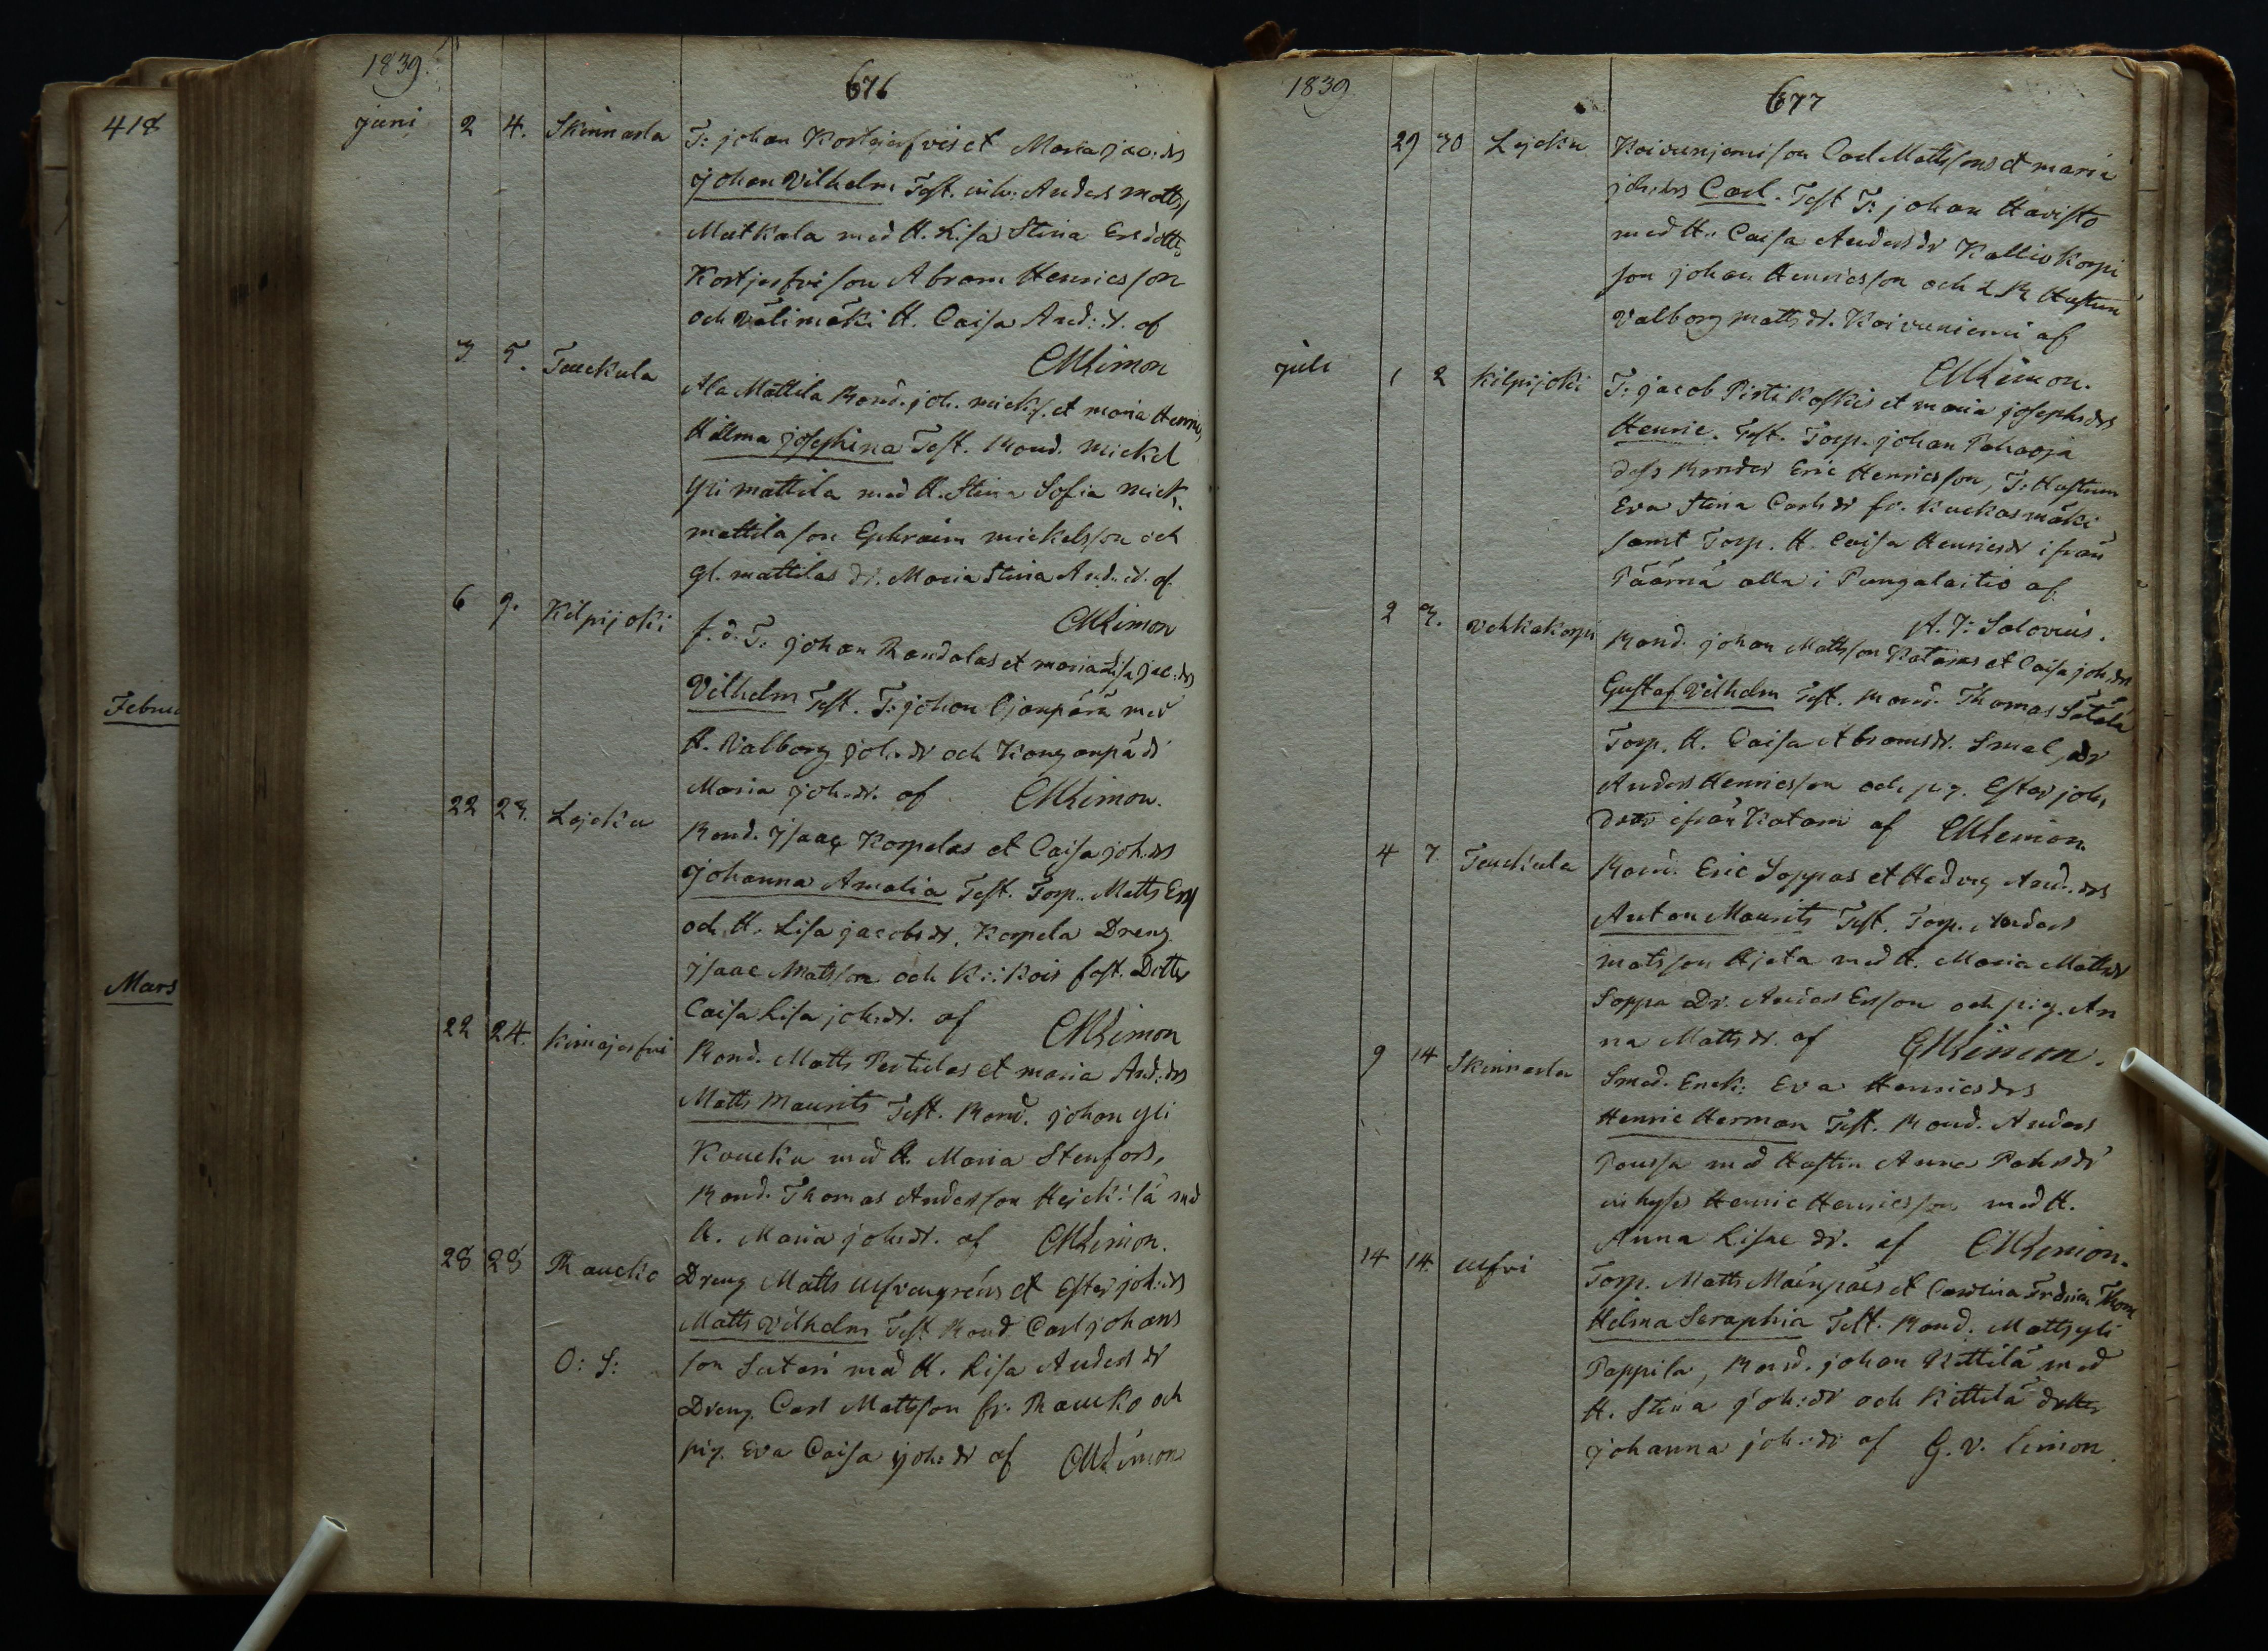 418
Februa
Mars
1839.
676
juni 2 4. Skinnarla T: johan Kortejerfvis et Maria jac:ds
johan Vilhelm Test. inh: Anders Matts,
Matkala med H. Lisa Stina Ersdott:
Kortjerfvi son Abram Henricsson
och Välimäki H. Caisa And: d. af
CMLimon
3 5. Teuckula Ala Mattila Bond. joh. mick: et maria Henric,
Hilma josephina Test. Bond. Mickel
Yli mattila med H. Stina Sofia Mick,
mattila son Ephraim mickelsson och
gl. mattilas dr. Maria Stina And: d. af
CMLimon
6 9. Kilpijoki f. d. T: johan Randalas et maria Lisa jac:ds
Vilhelm Test. T: johan Ojanpärä med
H. Valborg joh:dr och Kongonpä dr
Maria joh:dr. af CMLimon.
22 23. Lojoku Bond. jsaac Korpelas et Caisa joh:ds
johanna Amalia Test. Torp. Matts Ers
och H. Lisa jacobsdr. Korpela Dreng
jsaac Matsson och K:: Kois fost. Dotter
Caisa Lisa joh:dr. af CMLimon
22 24. Kimajerfvi Bond. Matts Pertulas et maria And:drs
Matts Maurits Test. Bond. johan yli
Kaucku med H. Maria Stenfors,
Bond. Thomas Andersson Hejckilä med
H. Maria joh:dr. af CMLimon.
28 28 Raucko Dreng Matts Ulfvengréns et Ester joh:ds
Matts Vilhelm Test Bond. Carl johans
O: S: son Sutari med H. Lisa Anders dr
Dreng. Carl Mattsson fr: Raucko och
pig. Eva Caisa joh:dr af CMLimon
1839
677
29 30 Lojoku Koivunjemi son Carl Mattssons et maria
joh:drs Carl. Test T: johan Havisto
med H: Caisa Anders dr Kalliokorpi
son johan Henricsson och Hustrun
Valborg Matts dr. Koivuniemi af
CMLimon.
juli 1 2 Kilpijoki T: jacob Pirtikoskis et maria josephsdrs
Henric. Test. Torp. johan Pahaoja
dess Broder Eric Henricsson, T: Hustrun
Eva Stina Carls dr fr. Kuckasmäki
samt Torp. H. Caisa Henricsdr ifrån
Päärnä alla i Pungalaitio af
A. J: Salovius.
2 3. Vehkakorpi Bond. johan Mattsson Katams et Caisa joh:drs
Gustaf Vilhelm Test. Bond. Thomas Sätälä
Torp. H. Caisa Abramsdr. Smal, dr
Anders Henricsson och pig. Ester joh,
dotr ifrån Katam af CMLimon.
4 7. Teuckula Bond. Eric Soppas et Hedvig And:drs
Anton Maurits Test. Torp. Anders
Matsson Hjeta med H. Maria Mattsdr
Soppa Dr. Anders Ersson och pig. An
na Matts dr. af CMLimon.
9 14 Skinnarla Smed. Enck: Eva Henricsdrs
Henric Herman Test. Bond. Anders
Poussa med Hustru Anna dr
inhyses Henric Henricsson med H.
Anna Lisae dr. af CMLimon.
14 14 Ulfvi Torp. Matts Mäenpäes et Carolina Thom
Helma Seraphia Test. Bond. Matts yli
Pappila, Bond. johan Kittilä med
H. Stina joh:dr och Kittilä dotter
johanna joh:dr af G. V. Limon.